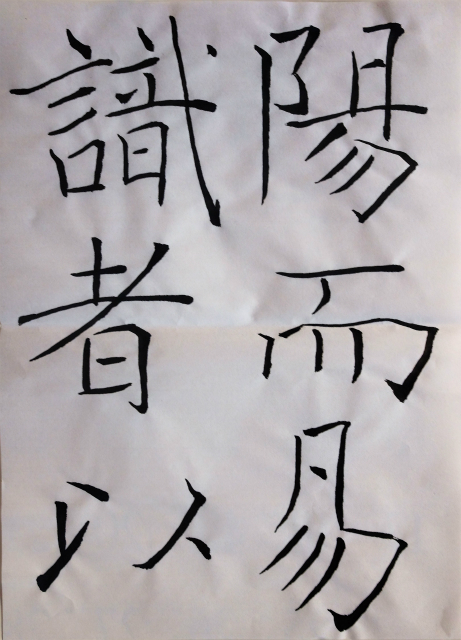 陽而易
識者以